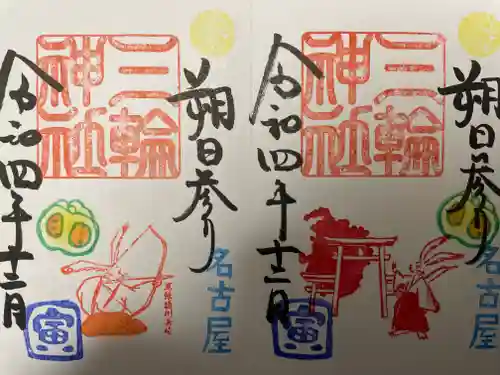 朔日参り
名古屋
三輪
神社
令和四年十二月
寅
朔日参り
名古屋
三輪
神社
令和四年十二月
寅